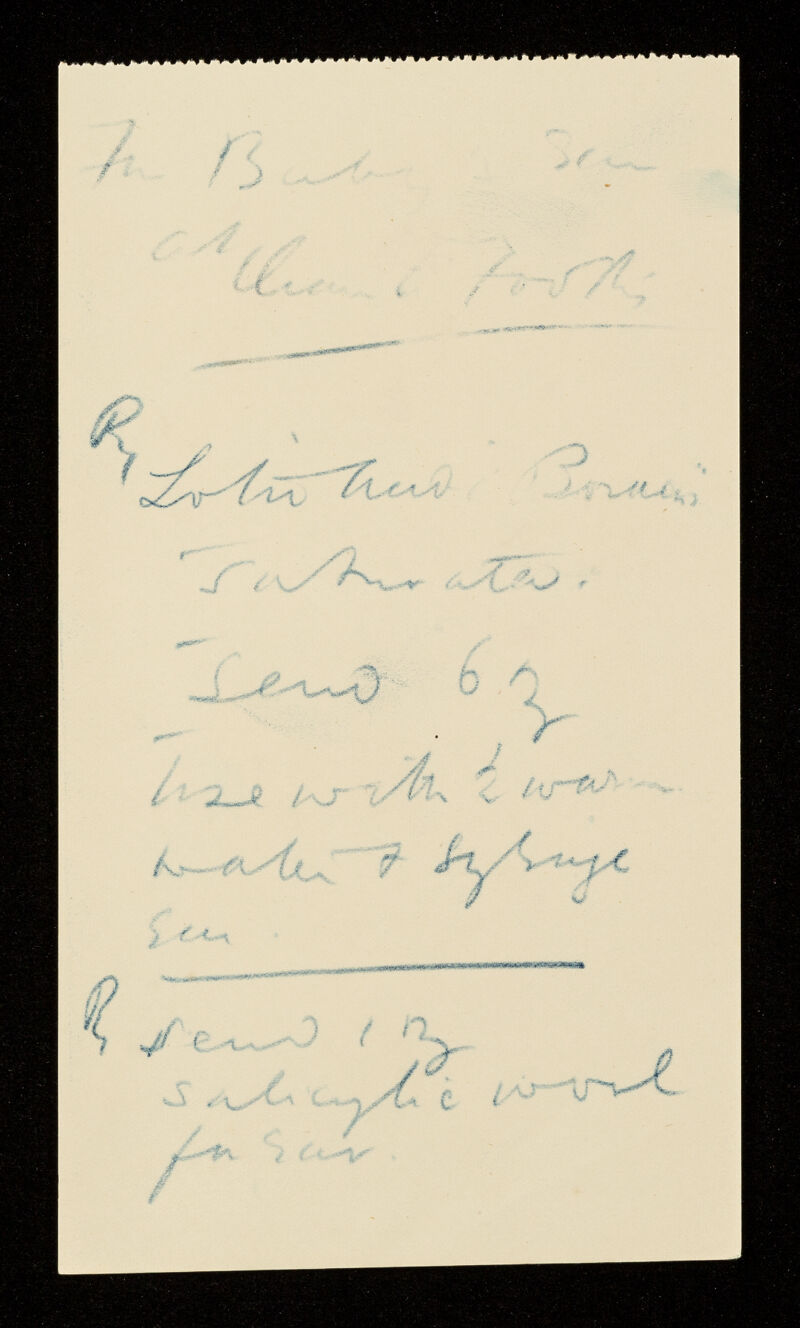 For Baby's Ear
at
℞ Lotio Acidi Boracis
Saturata.
Send 6 ℥
Use with ½ warm
water & Syringe
Ear.
℞ Send 1 ℥
Salicylic wool
for Ear.